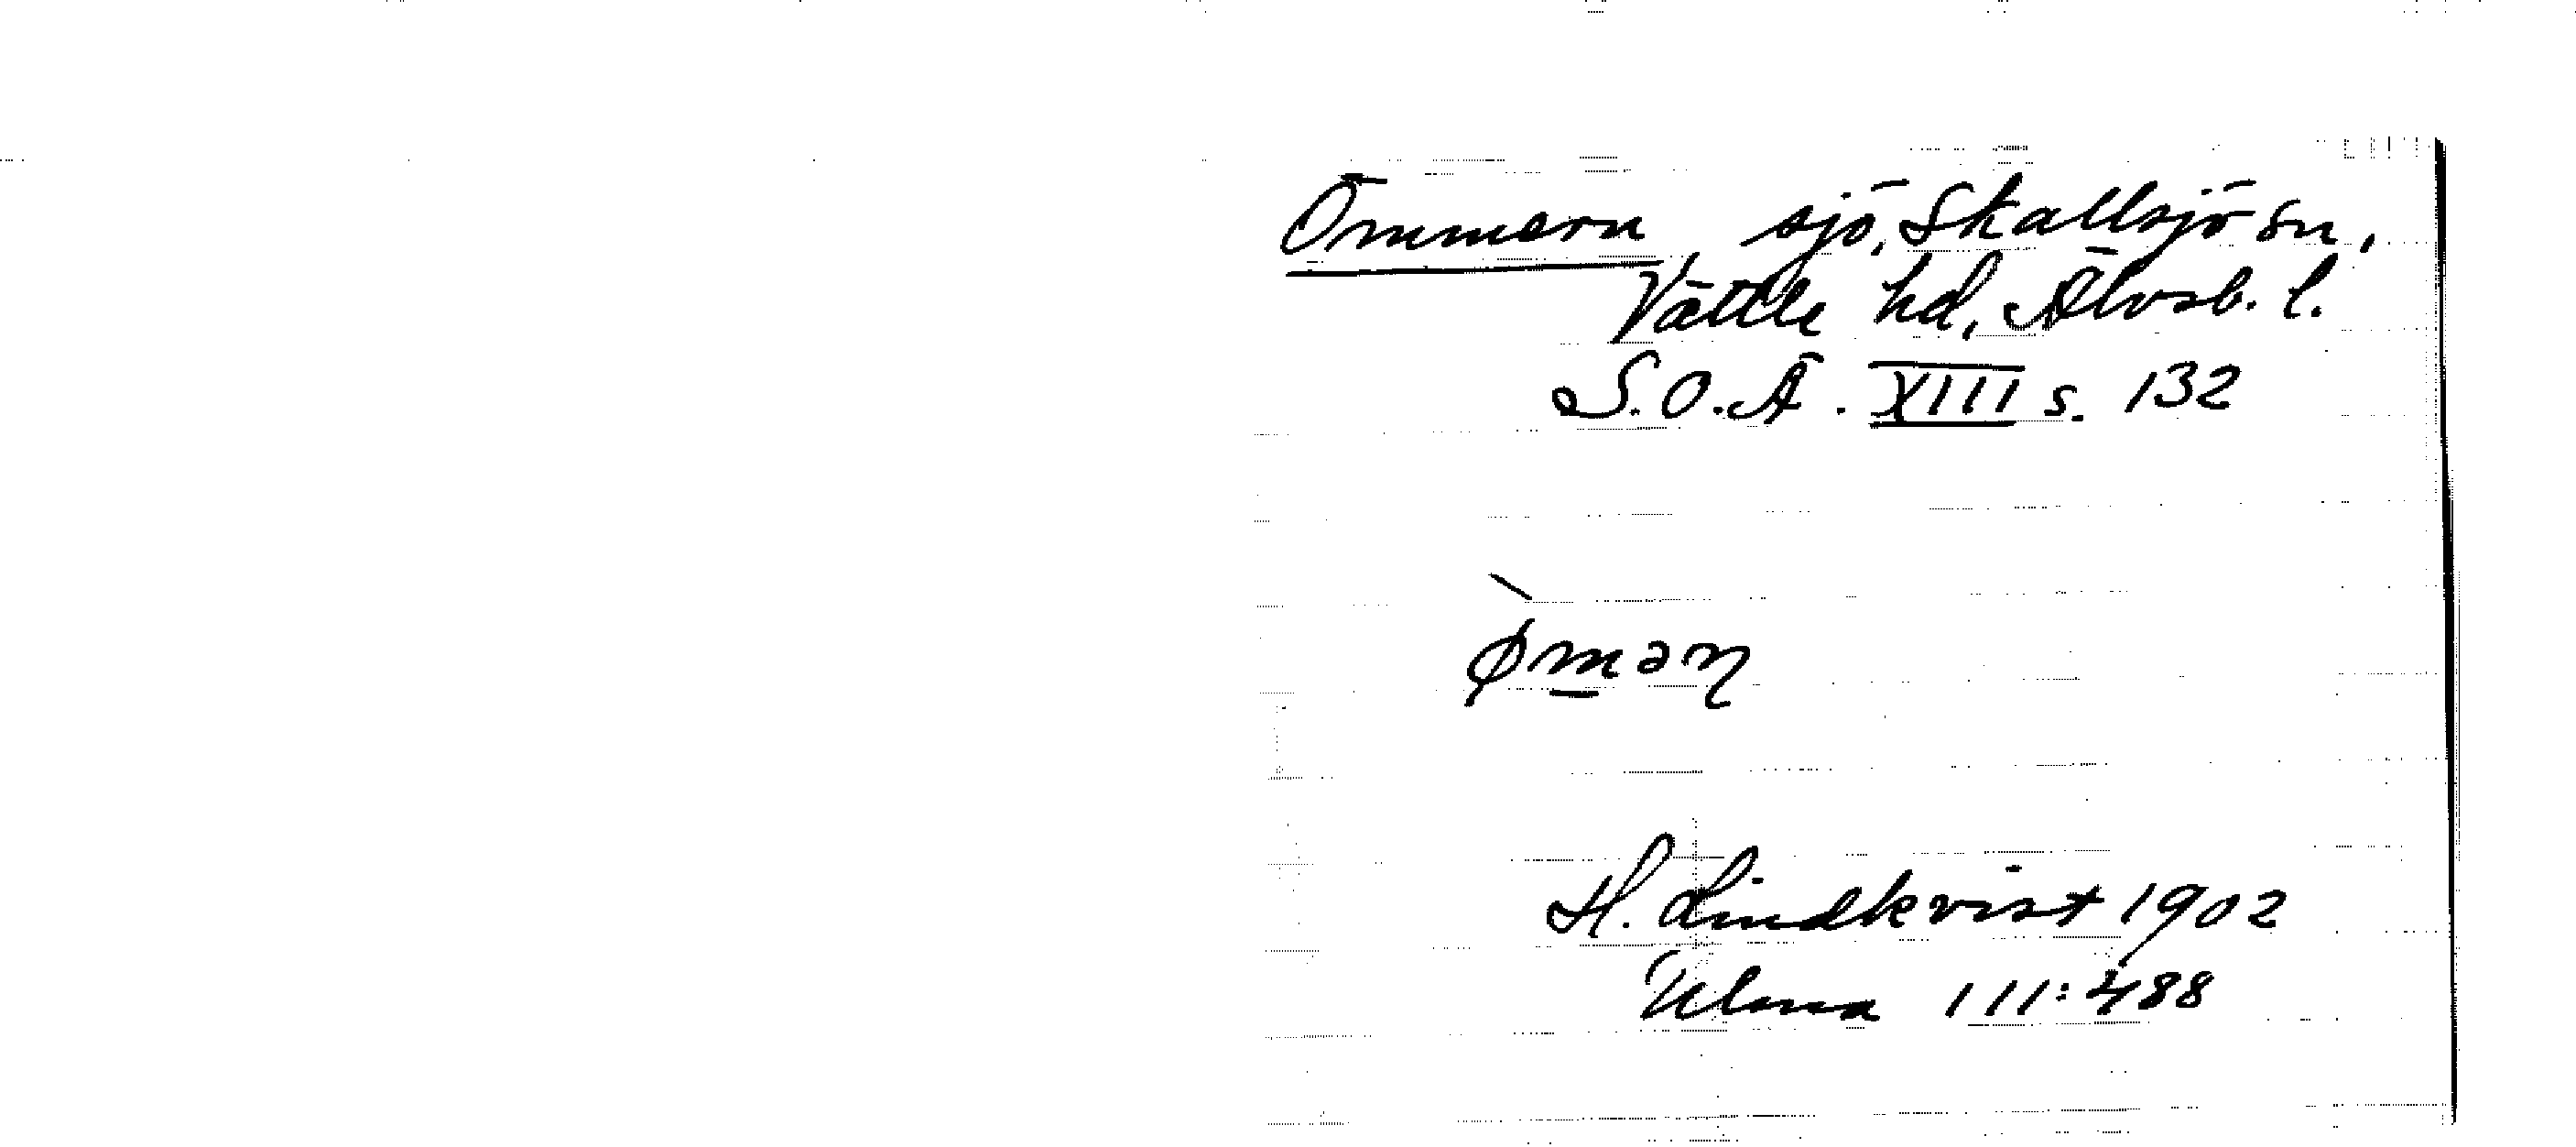 Ömmern sjö, Skallsjö sn,
Vättle hd, Älvsb. l.
S.O.Ä. XIII s. 132
øməɲ
H. Lindkvist 1902
Ulma 111:488